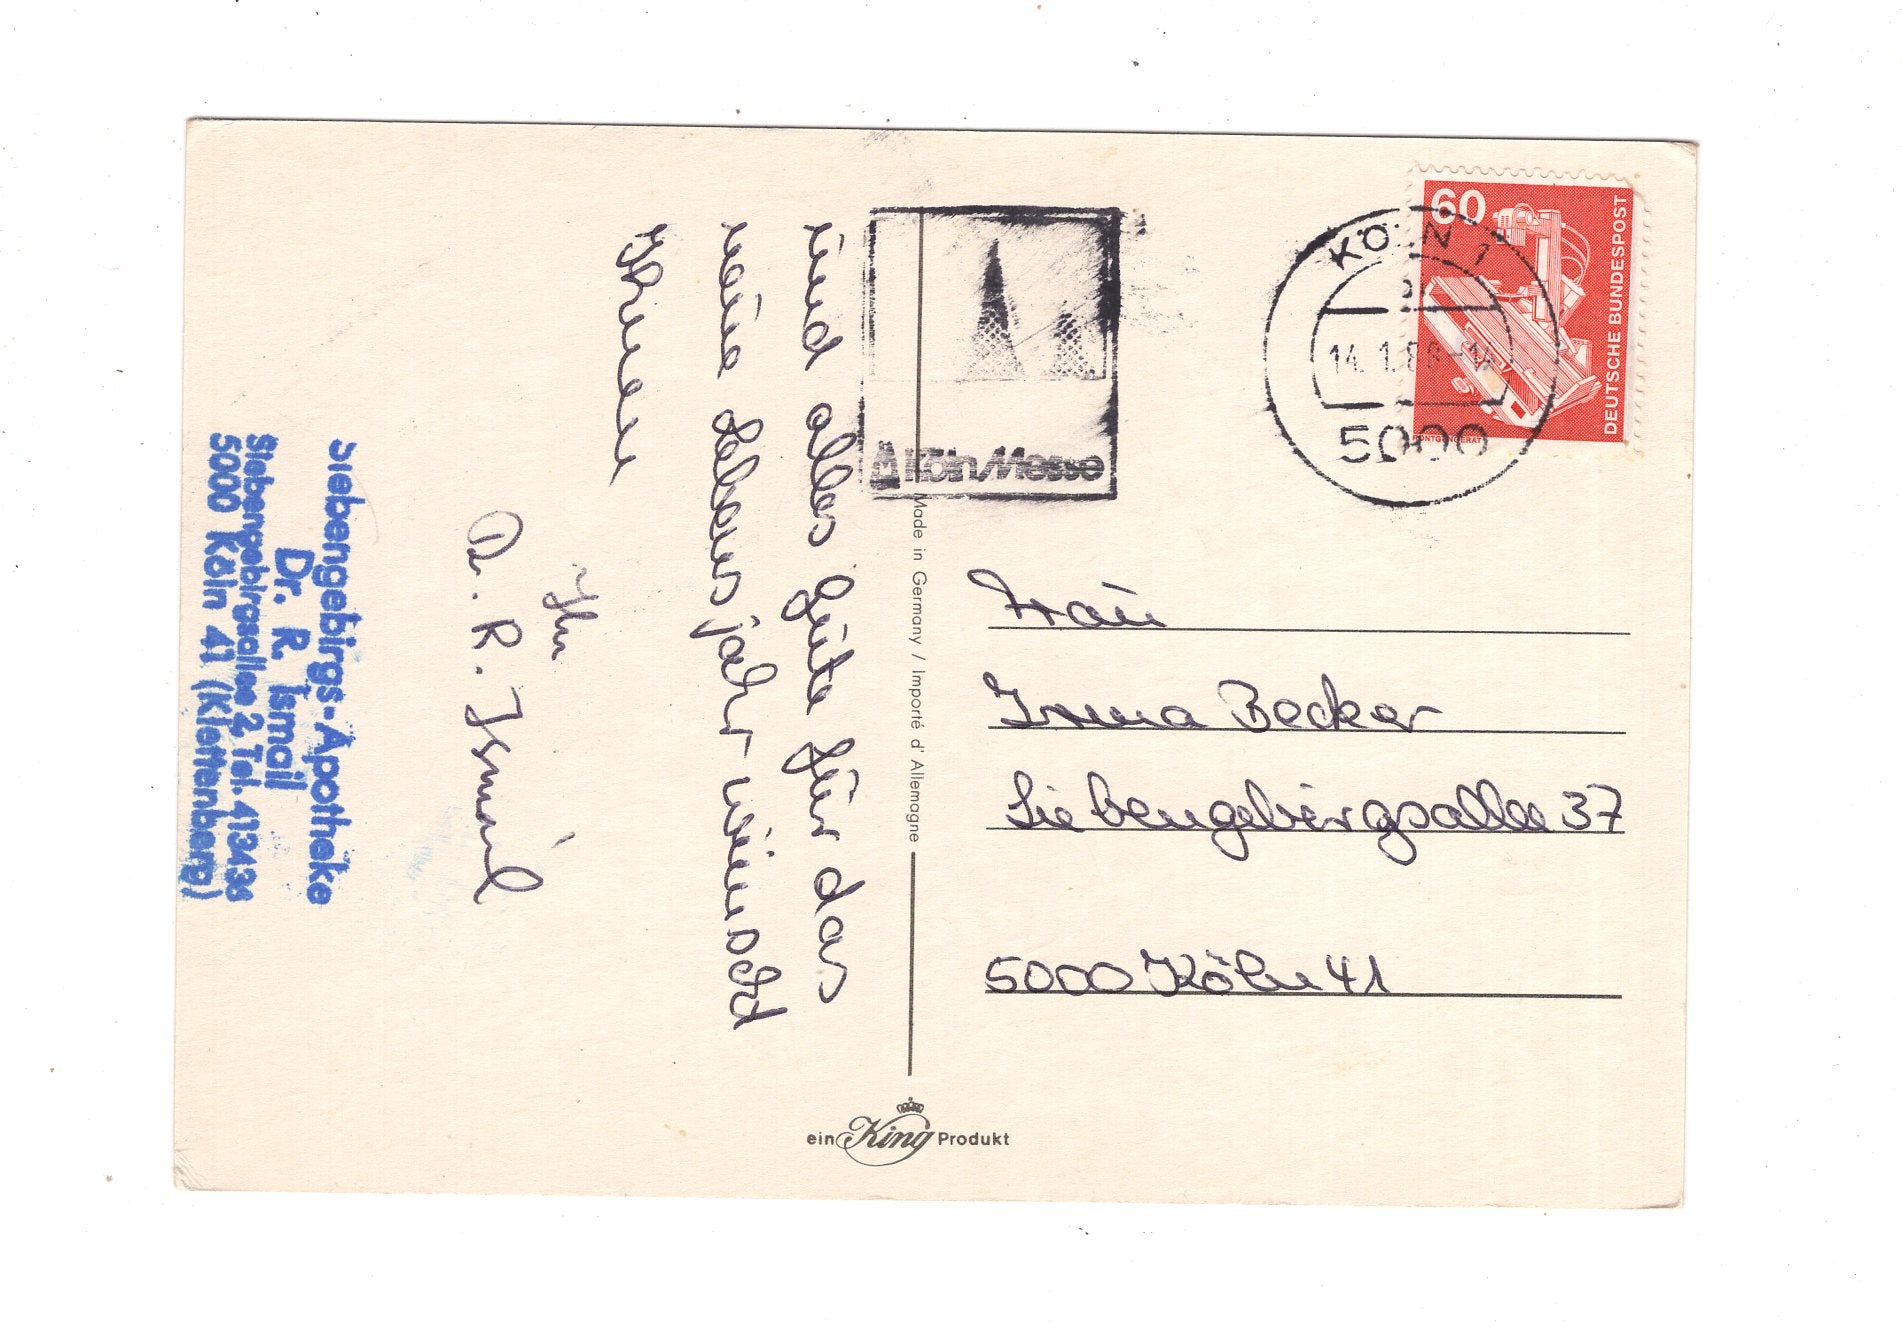 und alles gute für das
neue Lebensjahr wünscht
Ihnen
Ihr
Dr. R. Ismail
Siebengebirgs-Apotheke
Dr. R. Ismail
Siebengebirgsallee 2 Tel. 413436
5000 Köln 41 (Klettenberg)
Made in Germany / Importé d'Allemagne
ein King Produkt
Köln/Messe
KÖLN 1
14.1.8 -14
5000
60
DEUTSCHE BUNDESPOST
RÖNTGENGERÄT
Frau
Irma Becker
Siebengebirgsallee 37
5000 Köln 41